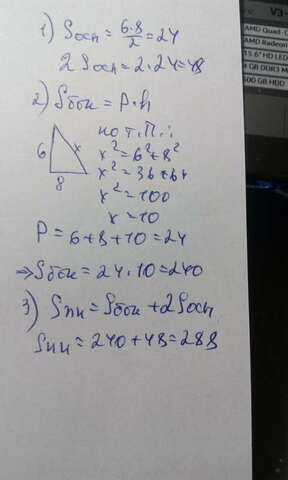 1) Sосн = 6·8/2 = 24
2Sосн = 2·24=48
2) Sбок = P·h
по т.П.:
6
x
8
x² = 6²+8²
x² = 36+64
x² = 100
x = 10
P = 6+8+10 = 24
⇒ Sбок = 24·10 = 240
3) Sпп = Sбок + 2Sосн
Sпп = 240+48=288
V3-
AMD Quad-C
AMD Radeon
15.6" HD LE
GB DDR3 M
500 GB HDD